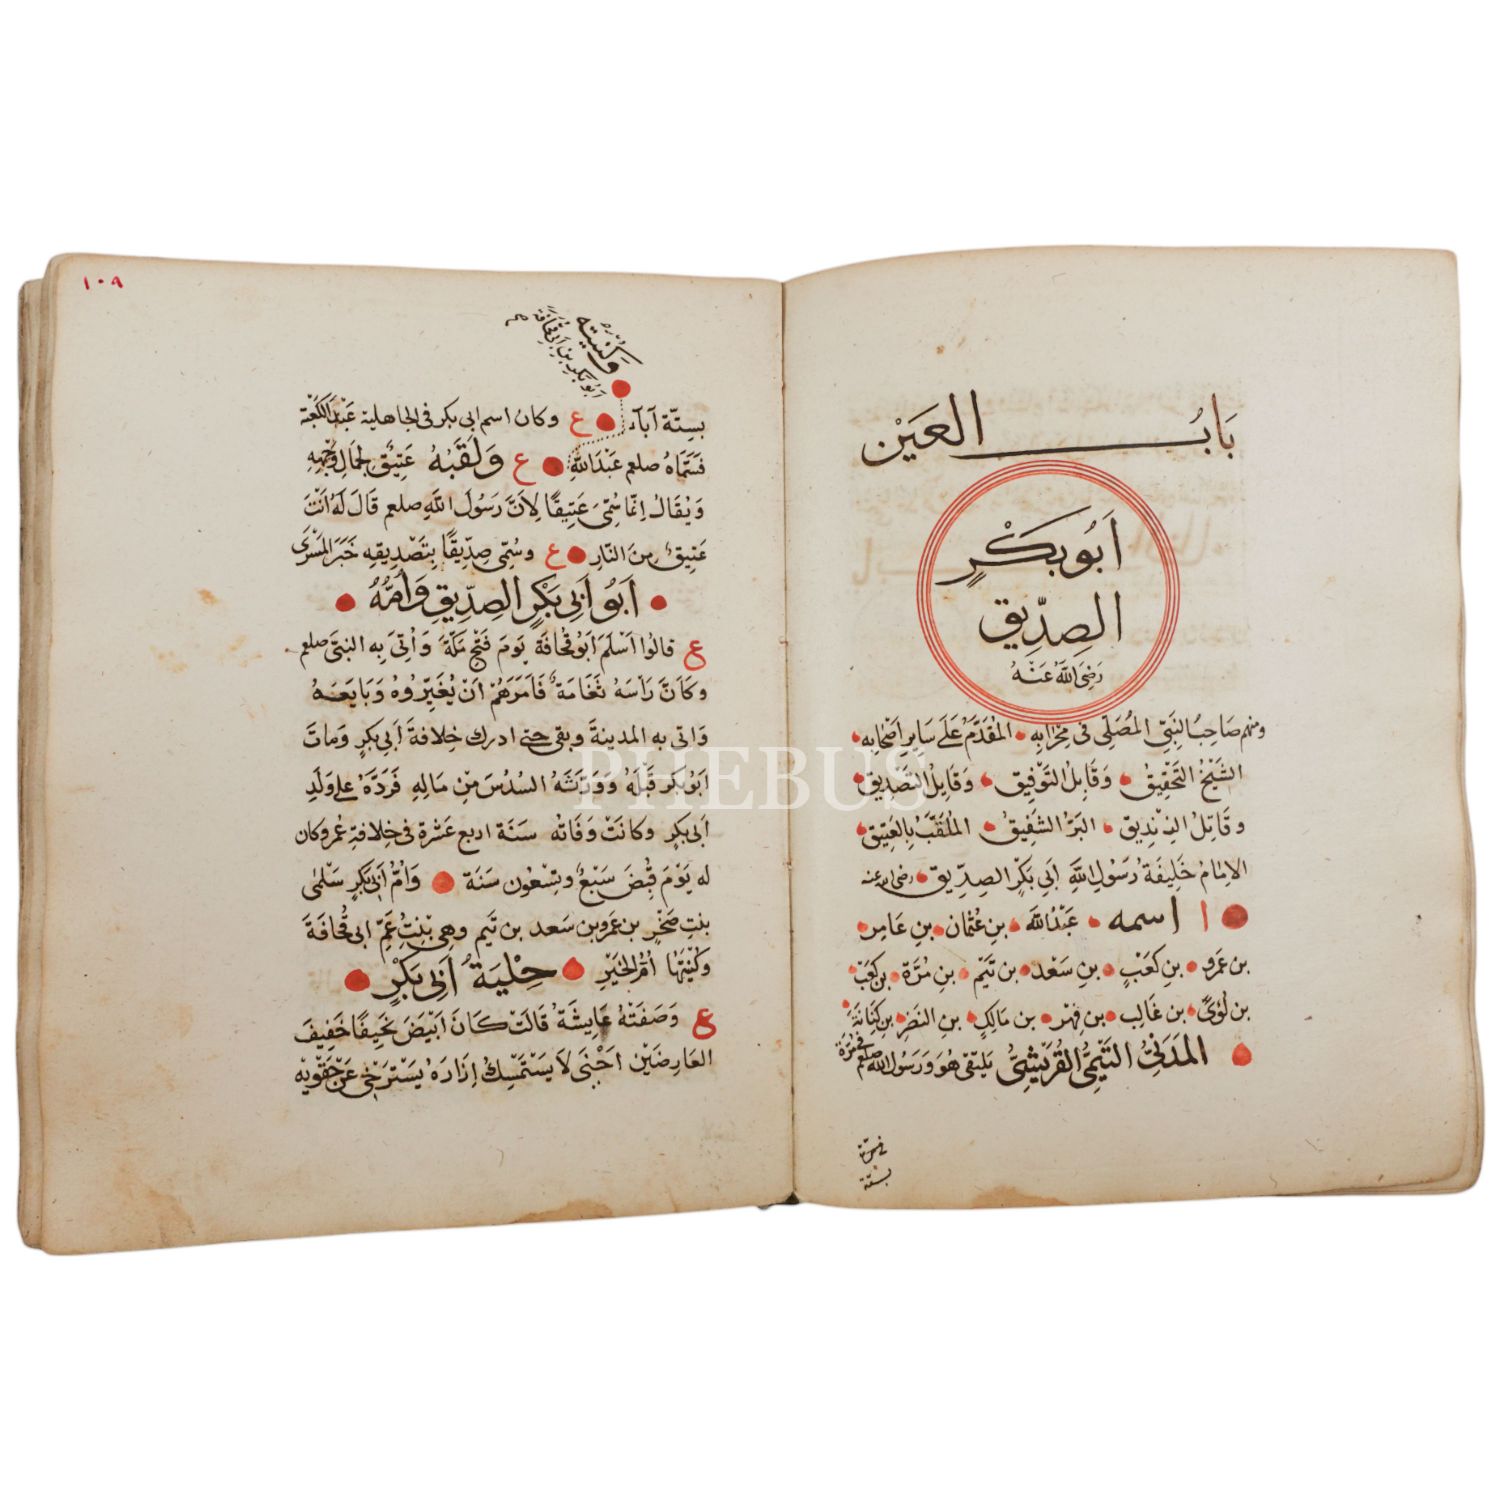 بَابُ العَيْن
اَبُو بَكْرٍ
الصِدِّيق
رَضِيَ اللهُ عَنْهُ
ومنهم صَاحِبُ النَبِّي المُصَلِّى فى مِحْرَابِه المُقدَّمُ عَلَى سَايِرِ اَصْحَابِه
الشَيْخُ التَحْقِيقُ وَقَابِلُ التَوْفِيق وَقَايِلُ التَصْدِيق
وقَاتِلُ الزِنْدِيق البَرُّ الشَفِيقُ المُلَقَّبُ بِالعَتِيق
الاِمَامُ خَلِيفَةُ رَسُولِ اللهِ اَبِى بَكْرٍ الصِدِّيق رضى الله عنه
ا اسمه عَبْدُ اللهِ بنِ عُثْمَان بنِ عَامِر
بن عَمرو بنِ كَعْبٍ بنِ سَعْد بن تَيْم بنِ مُرّة بن كَعْب
بن لُؤىّ بن غَالِب بن فِهْر بن مَالِكٍ بنِ النَضِر بن كِنَانَة
المَدَنِىُّ التَيْمِىُّ القُرَيْشِىُّ يَلتقى هُوَ وَرَسُولُ الله صلعم فى مُرّة
بستّة
١٠٩
وكُنْيَته
اَبُو بَكْرِ بن اَبِى قُحَافَة
بسِتّة آبَآء ع وكان اسم ابى بكر فى الجاهلية عَبْدَ الكَعْبَة
فَسَمّاهُ صلعم عَبْدَ اللهِ ع وَلَقَبُهُ عَتِيْق لجَمالِ وَجْهِهِ
وَيُقَالُ اِنّما سُمِّىَ عَتِيقًا لِاَنَّ رَسُولَ اللهِ صلعم قَالَ لَهُ اَنْتَ
عَتِيقٌ مِنَ النَارِ ع وسُمِّى صِدِّيقًا بِتَصْدِيقِهِ خَبَرَ المَسْرَى
اَبُو اَبِى بَكْرٍ الصِدِّيقِ وَاُمُّهُ
ع قالُوا اَسْلَمَ اَبُو قُحَافَة يَومَ فَتْحِ مَكّةَ وَاُتِىَ بِهِ النبىَّ صلعم
وكَاَنَّ رَاسَهُ ثَغَامَةٌ فَاَمَرَهُمْ اَنْ يُغَيِّرُوهُ وَبَايَعَهُ
وَاتى به المدينةَ وبقى حتى ادرك خِلافةَ اَبِى بكرٍ وَماتَ
اَبُو بكرَ قَبْلَهُ وَوَرَّثَهُ السُدُسَ مِنْ مَالِهِ فَرَدَّهُ على وَلَدِ
اَبى بكرٍ وكانَتْ وَفَاتُه سَنَةَ اربع عَشْرَةَ فى خِلافةِ عُمر وكان
له يَوْمَ قُبِضَ سَبْعٌ وتِسْعُون سَنَة وَاُمُّ اَبِى بَكرٍ سَلْمٰى
بنتِ صَخْرِ بن عَمرو بن سَعد بن تَيم وهِى بِنْتُ عَمِّ ابى قُحَافَةَ
وكُنْيَتُهَا اُمُّ الخَيْرِ حِلْيَةُ اَبِى بَكْرٍ
ع وَصَفَتْهُ عَايِشَةُ قَالَتْ كَانَ اَبْيَضَ نَحِيفًا خَفِيفَ
العَارِضَيْن اَحْنَى لَا يَسْتَمْسِكُ اِزَارَهُ يَسْتَرْخِى عَنْ حَقْوَيْه
PHEBUS